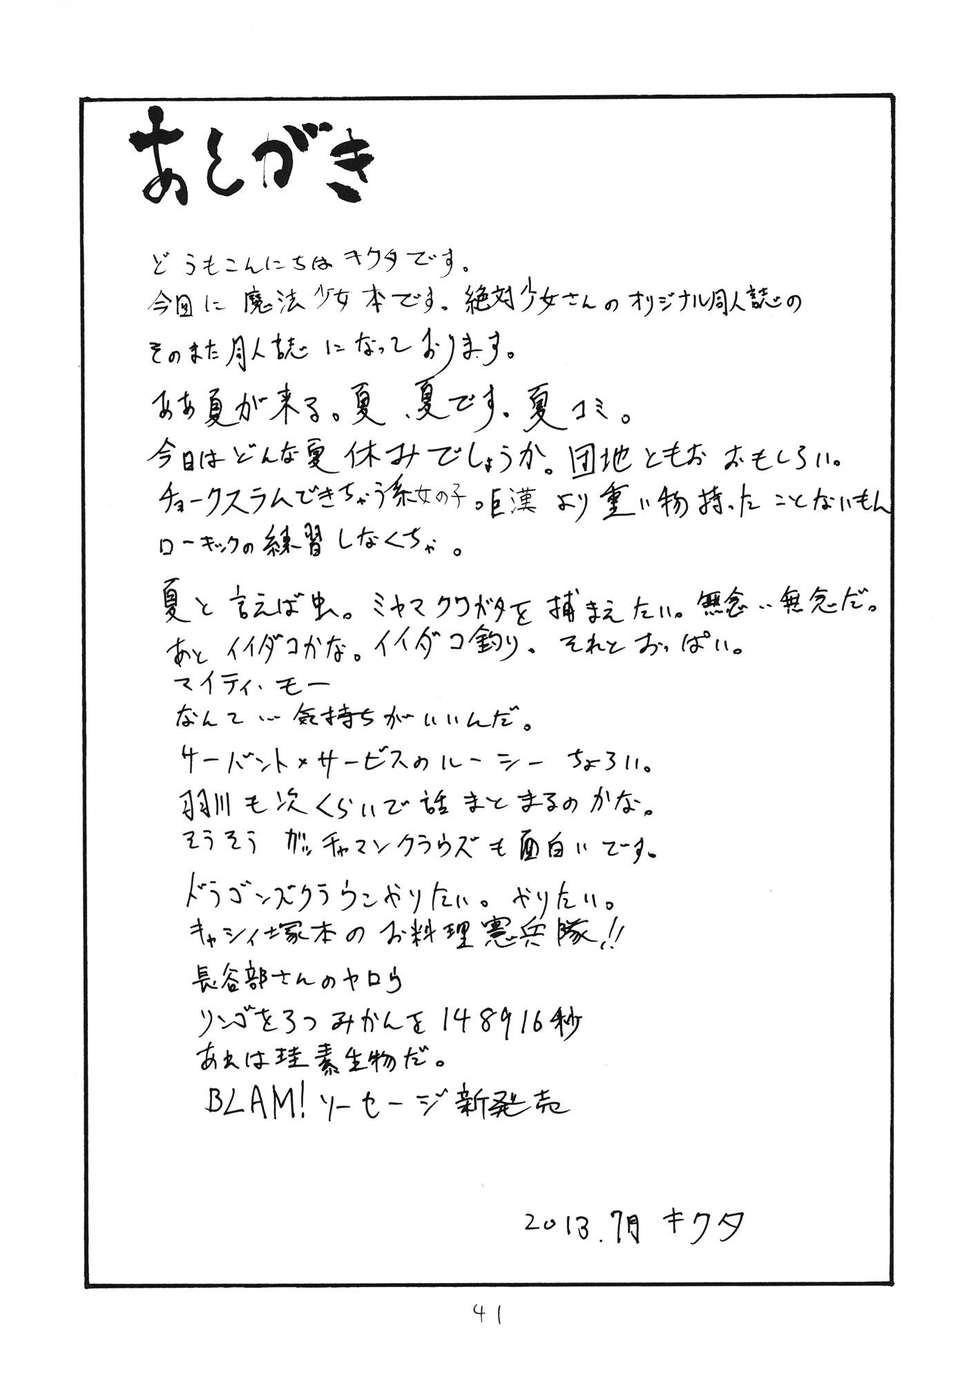 あとがき
どうもこんにちは キクタです。
今回は 魔法少女本です。絶対少女さんのオリジナル同人誌の
そのまた同人誌 になっております。
ああ夏が来る。夏、夏です。夏コミ。
今日はどんな夏休みでしょうか。団地ともお おもしろい。
チョークスラムできちゃう系女の子。巨漢 より重い物持ったことないもん
ローキックの練習しなくちゃ。
夏と言えば虫。ミヤマクワガタを捕まえたい。無念…無念だ。
あと イイダコかな。イイダコ釣り、それとおっぱい。
マイティ・モー
なんて…気持ちがいいんだ。
サーバント×サービスのルーシー ちょろい。
羽川も次くらいで話まとまるのかな。
そうそう ガッチャマンクラウズも面白いです。
ドラゴンズクラウンやりたい。やりたい。
キャシィ塚本のお料理憲兵隊!!
長谷部さんのヤロウ
リンゴを3つみかんを148916秒
あれは珪素生物だ。
BLAM!ソーセージ新発売
2013.7月 キクタ
41